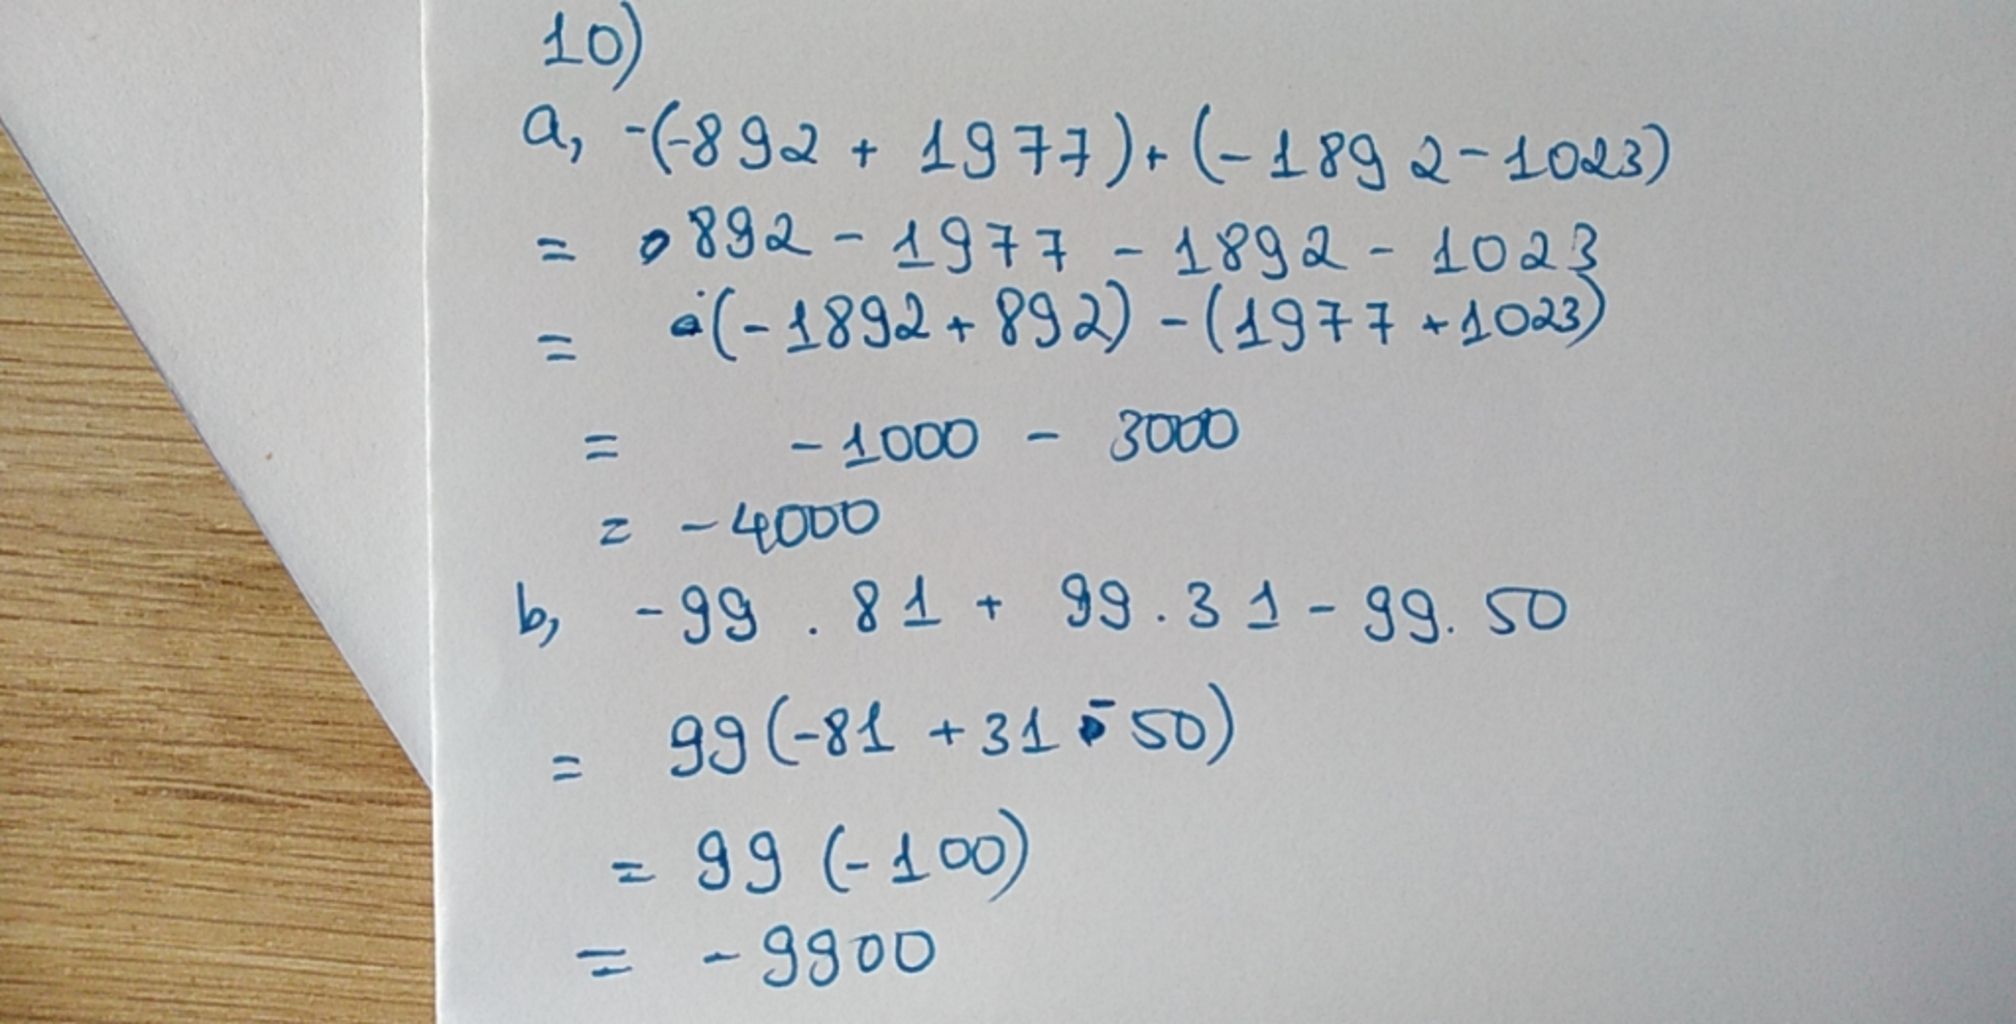 10)
a, -(-892 + 1977) + (-1892-1023)
= 892 - 1977 - 1892 - 1023
= (-1892 + 892) - (1977 + 1023)
= -1000 - 3000
= -4000
b, -99 . 81 + 99 . 31 - 99. 50
= 99(-81 + 31 - 50)
= 99 (-100)
= -9900